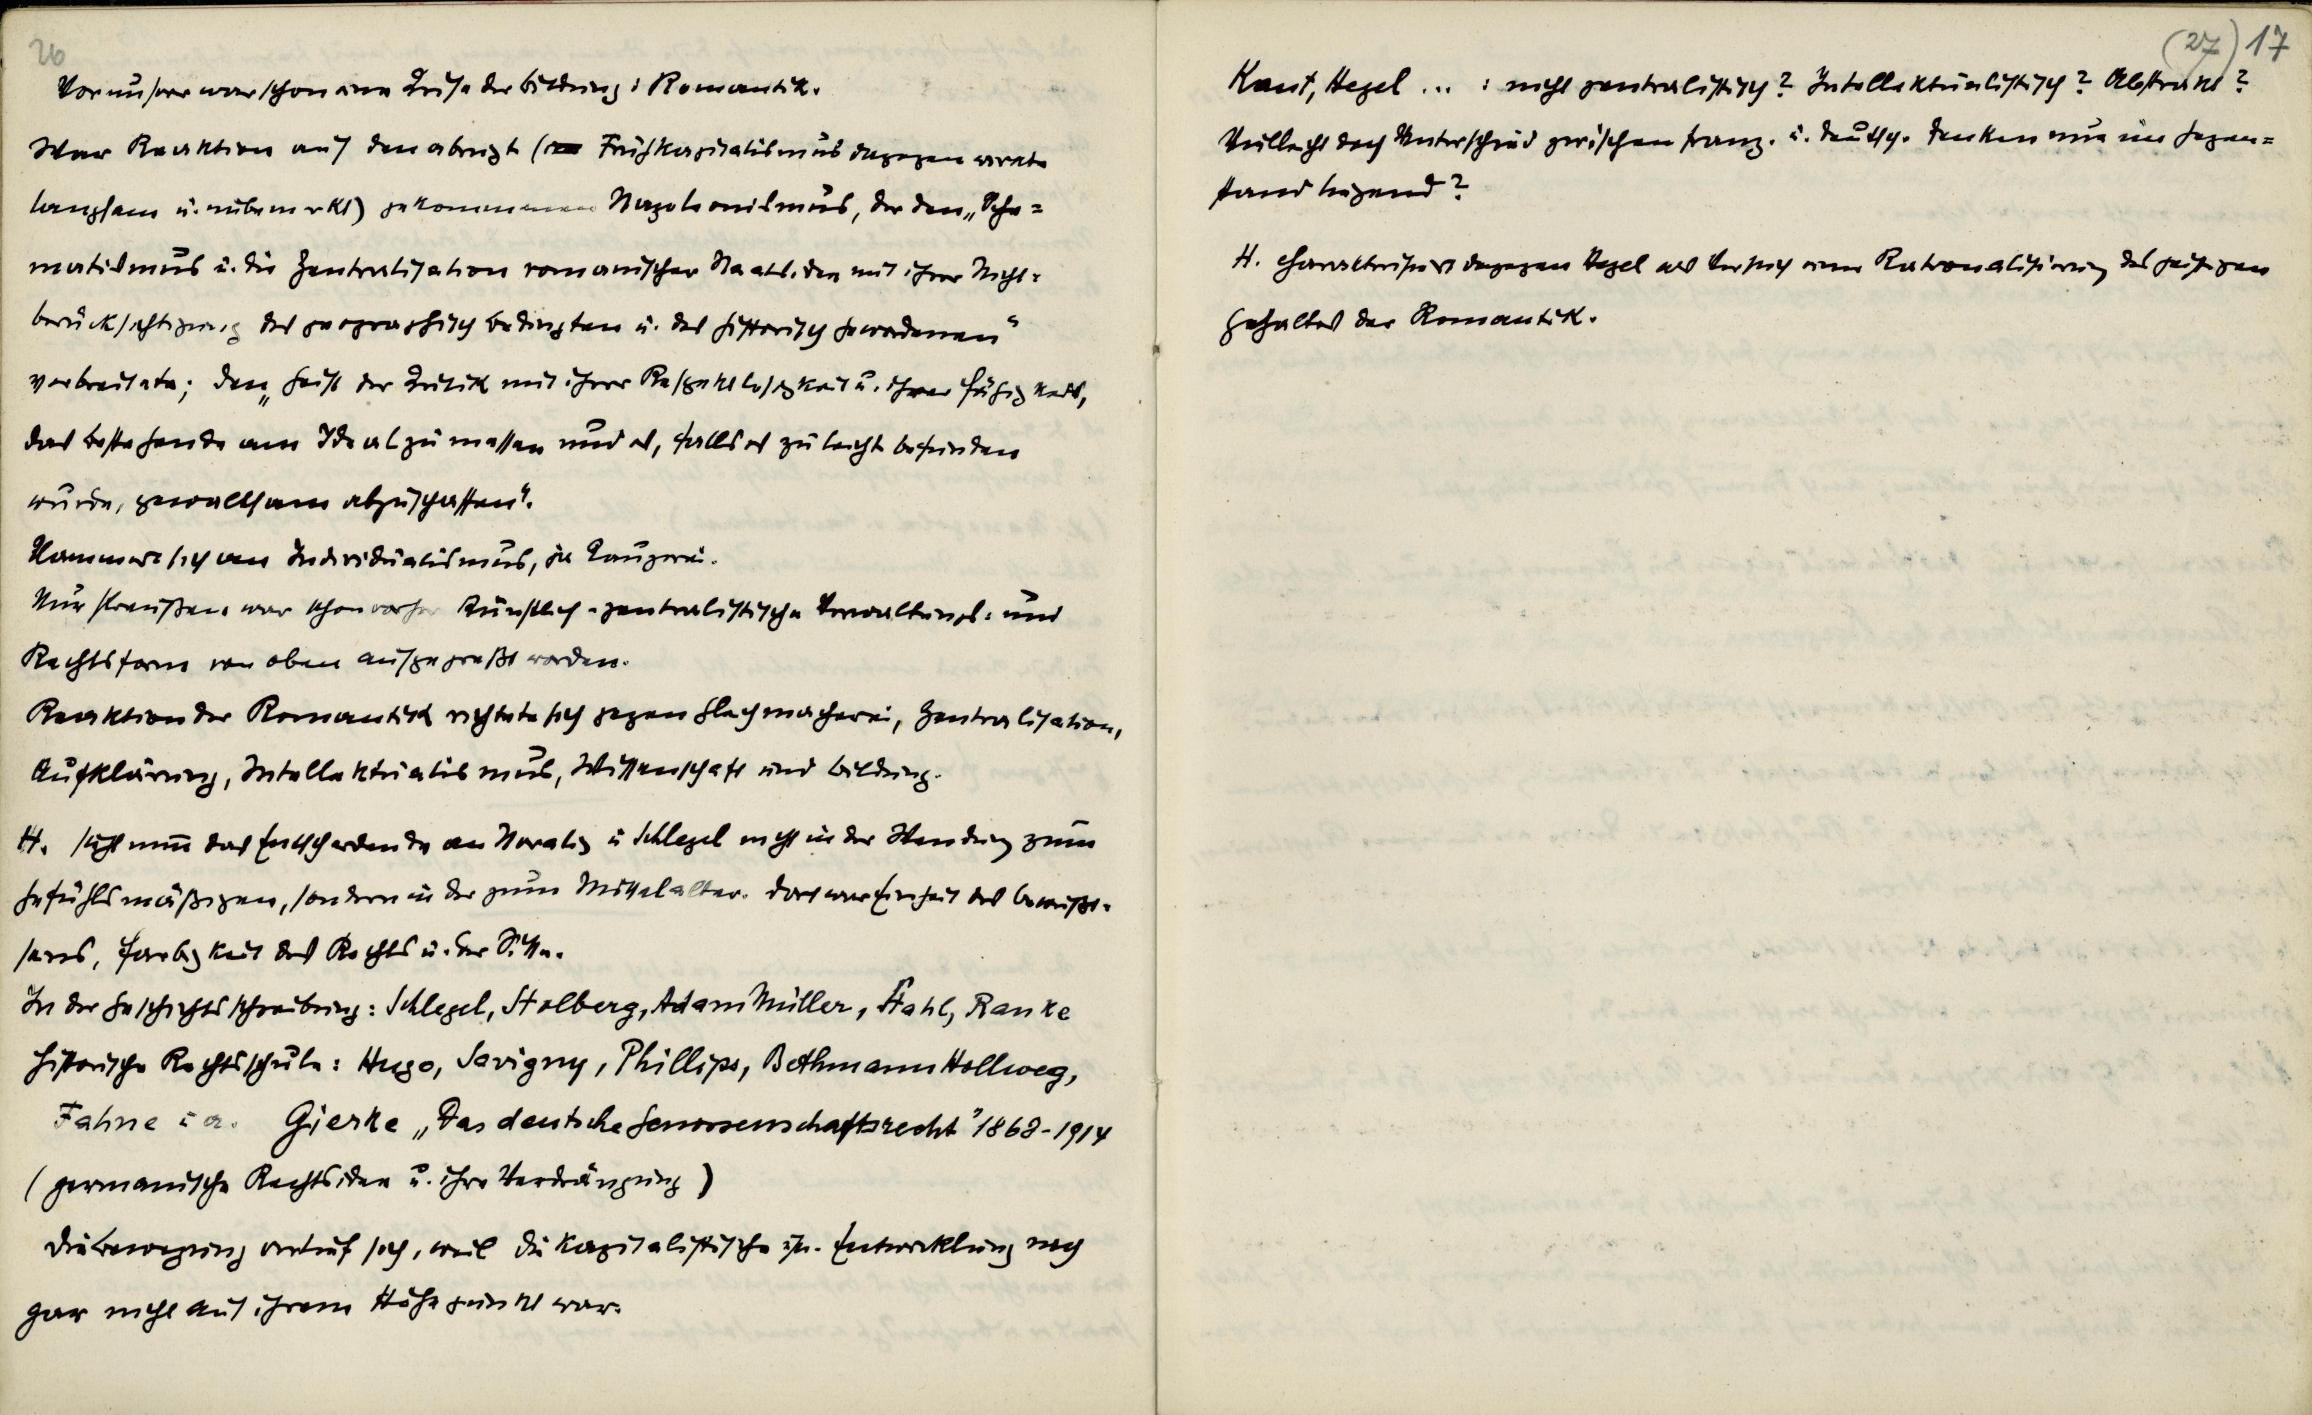 26
Vor unserer war schon eine Krise der Bildung: Romantik.
War Reaktion auf den abrupt (der Frühkapitalismus dagegen wirkte
langsam u. unbemerkt) gekommenen Napoleonismus, der den „Sche=
matismus u. die Zentralisation romanischer Staatsidee mit ihrer Nicht=
berücksichtigung des geographisch Bedingten u. des historisch Gewordenen"
verbreitete; den „Geist der Kritik mit ihrer Respektlosigkeit u. ihrer Fähigkeit,
das Bestehende am Ideal zu messen und es, falls es zu leicht befunden
wurde, gewaltsam abzuschaffen".
Klammert sich an Individualismus, ja
Nur Preußen war schon vorher künstlich-zentralistische Verwaltungs= und
Rechtsform von oben aufgepreßt worden.
Reaktion der Romantik richtete sich gegen Gleichmacherei, Zentralisation,
Aufklärung, Intellektualismus, Wissenschaft und Bildung.
H. sieht nun das Entscheidende an Novalis u Schlegel nicht in der Wendung zum
Gefühlsmäßigen, sondern in der zum Mittelalter. Dort war Einheit des Bewußt=
seins, Farbigkeit des Rechts u. der Sitte.
In der Geschichtsschreibung: Schlegel, Stolberg, Adam Müller, Stahl, Ranke
Historische Rechtsschule: Hugo, Savigny, Phillips, Bethmann Hollweg,
Fahne u a. Gierke „Das deutsche Genossenschaftsrecht" 1868-1914
(germanische Rechtsidee u. ihre Verdrängung)
Die Bewegung verlief sich, weil die kapitalistische Entwicklung noch
gar nicht auf ihrem Höhepunkt war.
(27) 17
Kant, Hegel ... : nicht zentralistisch? Intellektualistisch? Abstrakt?
Vielleicht doch Unterschied zwischen franz. u. deutsch. Denken nur im Gegen=
stand liegend?
H. charakterisiert dagegen Hegel als Versuch einer Rationalisierung des geistigen
Gehaltes der Romantik.